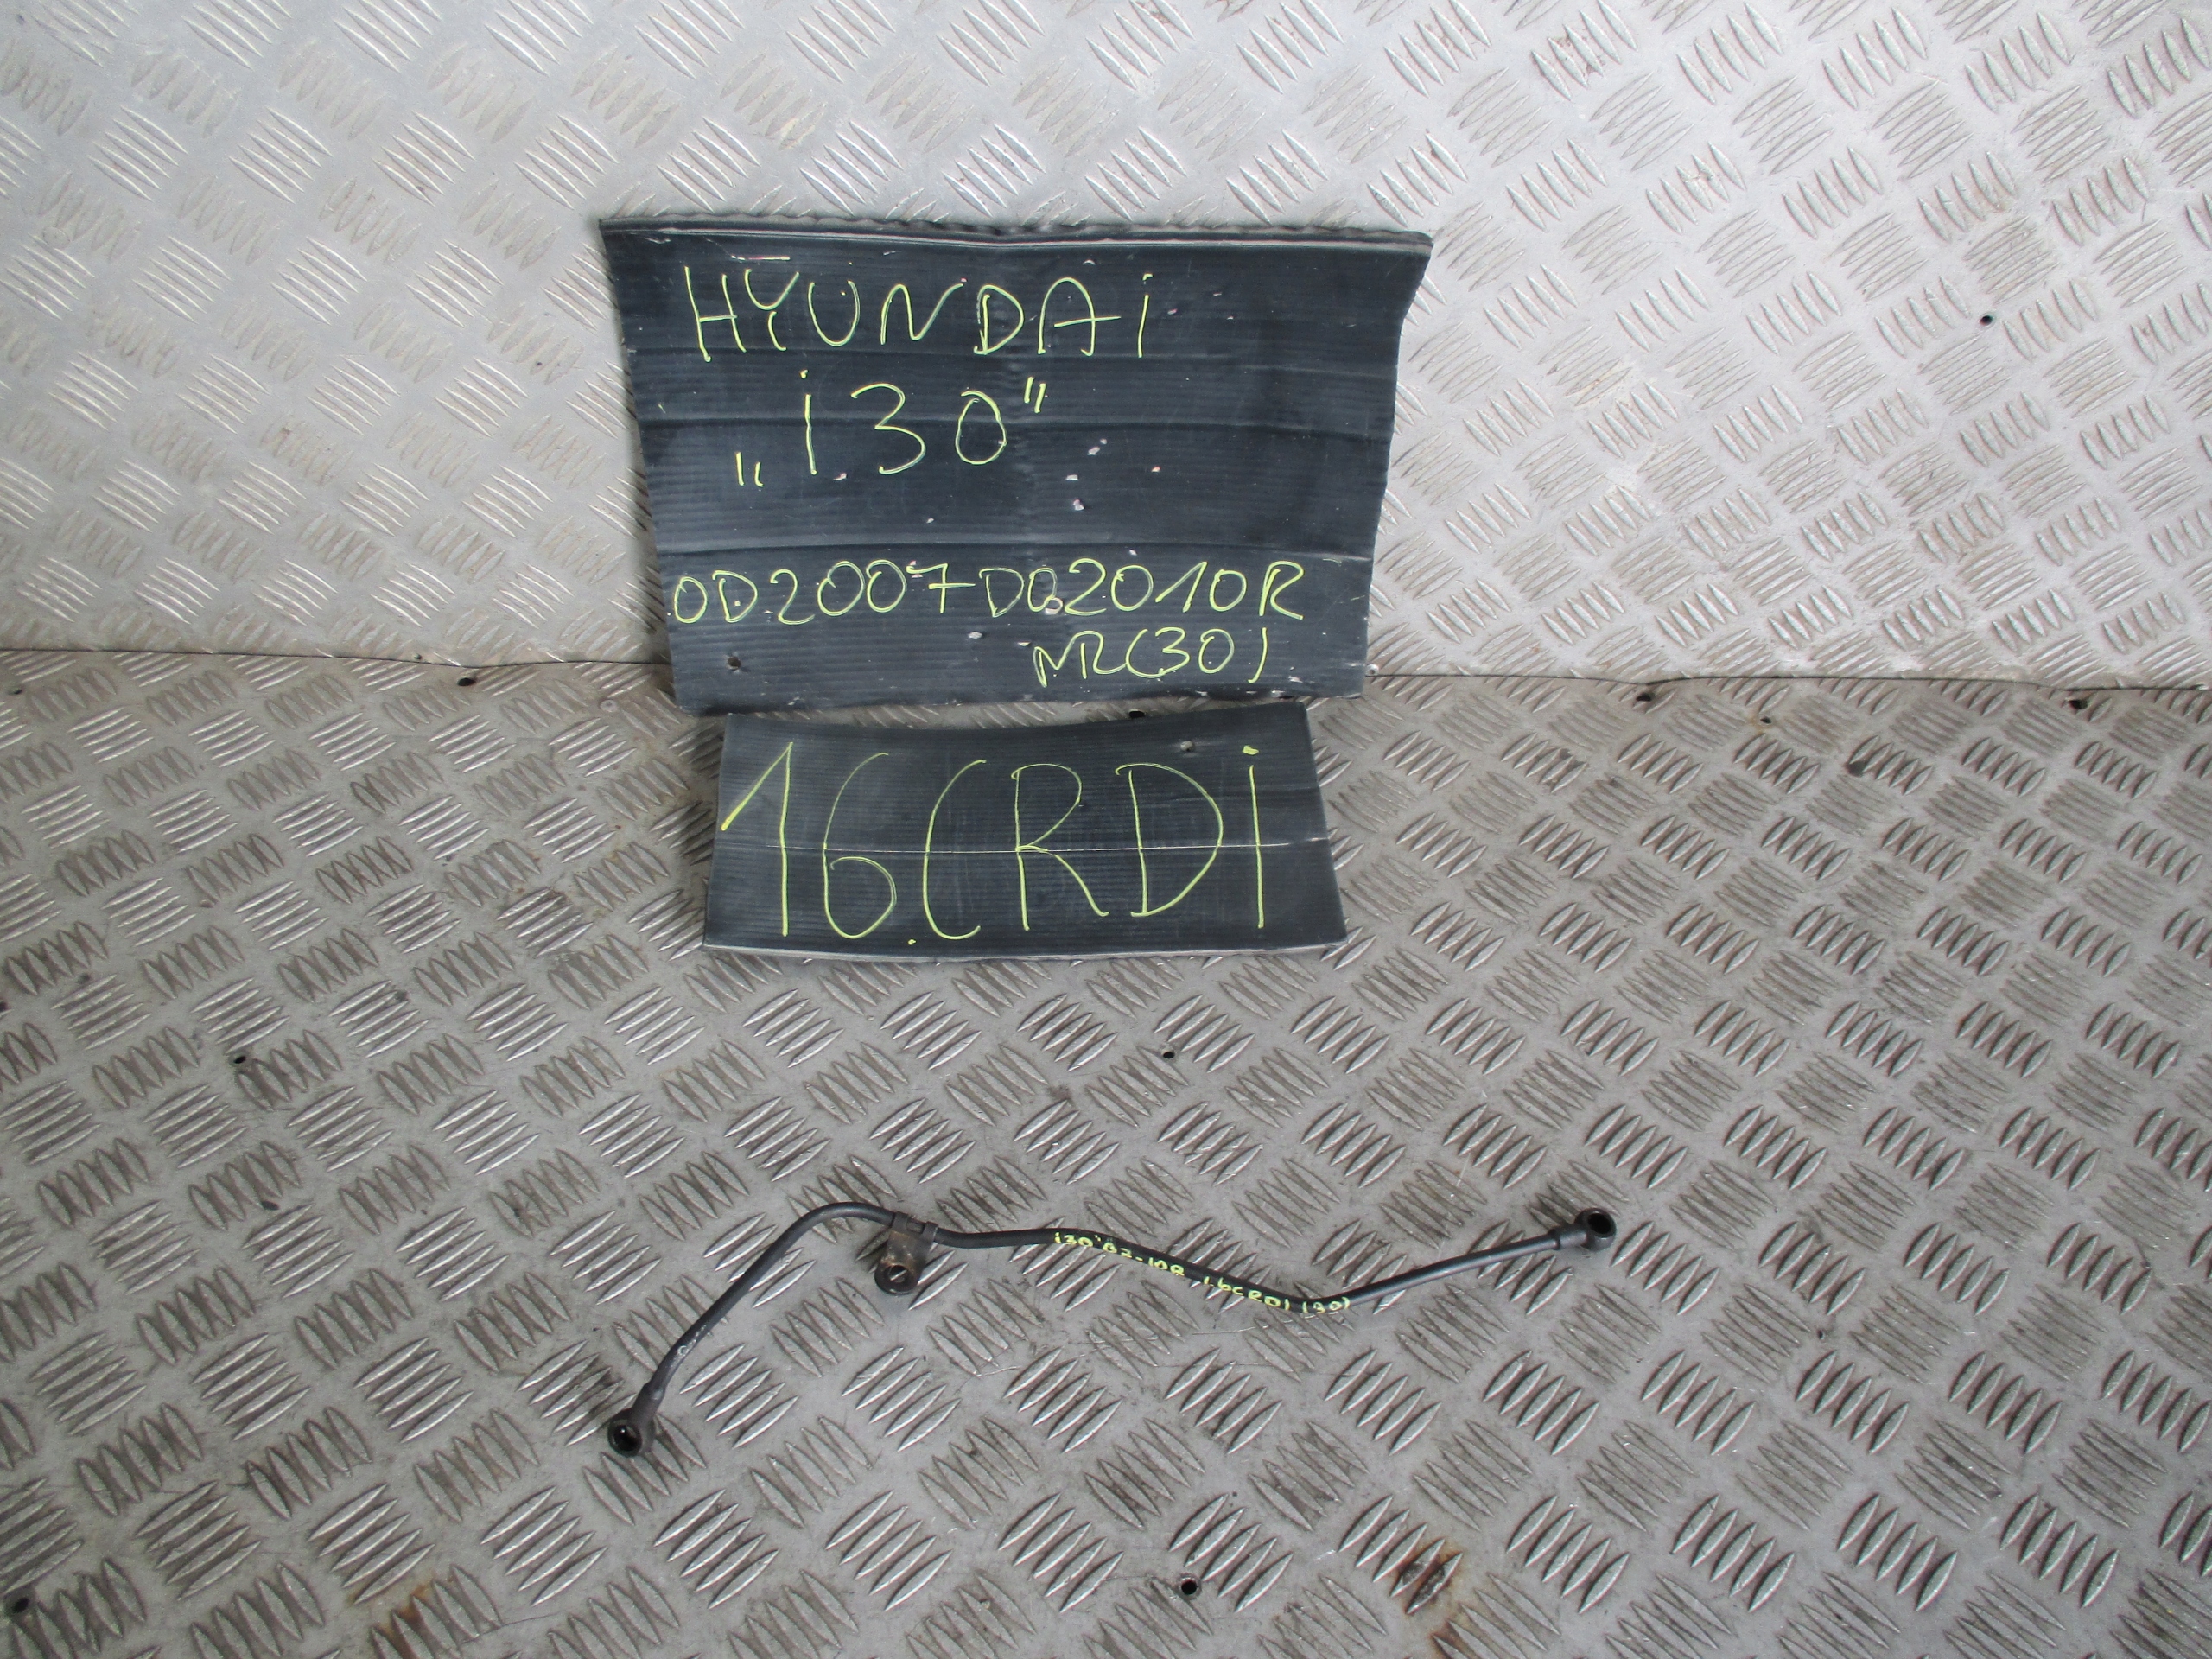 HYUNDAi
„i30”
OD2007DO2010R
NR(30)
16CRDi
i30 07-10R 1.6CRDI (30)